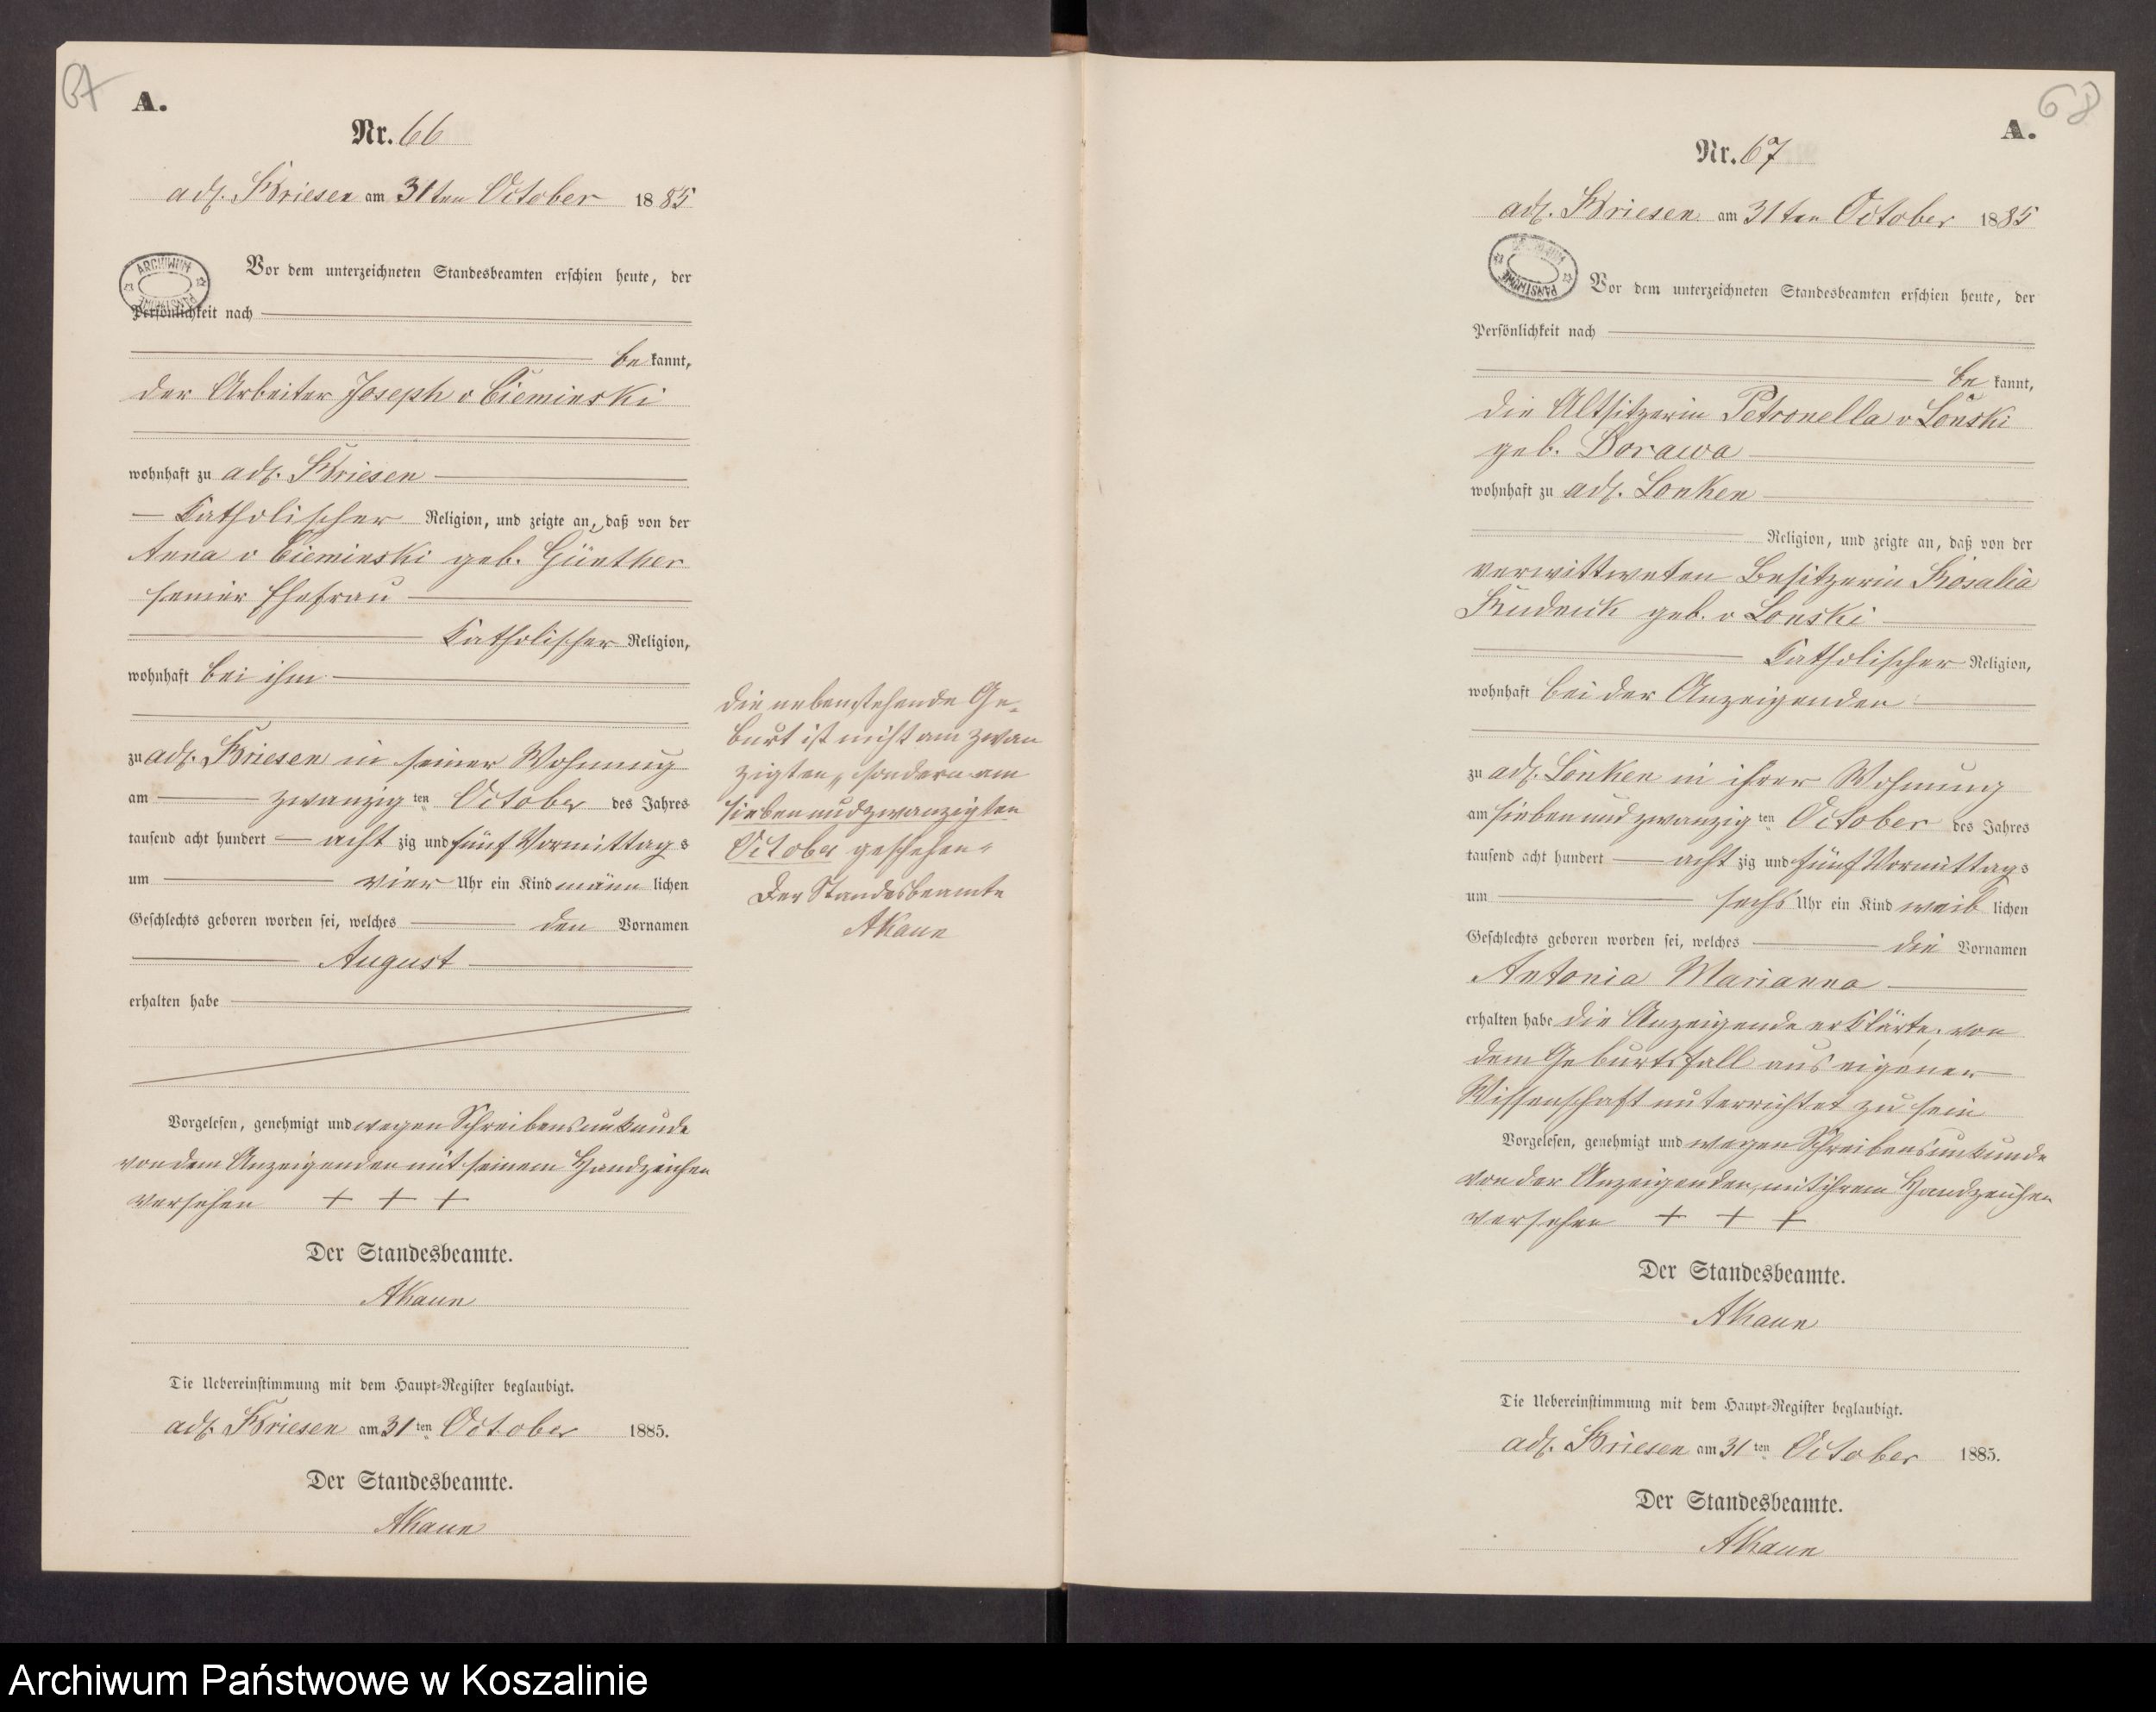 67
A.
Nr. 66
adl. Briesen am 31ten October 1885
ARCHIWUM PAŃSTWOWE
Vor dem unterzeichneten Standesbeamten erschien heute, der
Persönlichkeit nach
be kannt,
der Arbeiter Joseph v Cieminski
wohnhaft zu adl. Briesen
Katholischer Religion, und zeigte an, daß von der
Anna v Cieminski geb. Günther
seiner Ehefrau
Katholischer Religion,
wohnhaft bei ihm
zu adl. Briesen in seiner Wohnung
am zwanzig ten October des Jahres
tausend acht hundert acht zig und fünf Vormittags
um vier Uhr ein Kind männ lichen
Geschlechts geboren worden sei, welches den Vornamen
August
erhalten habe
Vorgelesen, genehmigt und wegen Schreibensunkunde
von dem Anzeigenden mit seinem Handzeichen
versehen + + +
Der Standesbeamte.
AKaun
Die Uebereinstimmung mit dem Haupt-Register beglaubigt.
adl. Briesen am 31 ten October 1885.
Der Standesbeamte.
AKaun
Die nebenstehende Ge-
burt ist nicht am zwan
zigten, sondern am
siebenundzwanzigten
October geschehen.
Der Standesbeamte
AKaun
68
A.
Nr. 67
adl. Briesen am 31ten October 1885
PAŃSTWOWE
Vor dem unterzeichneten Standesbeamten erschien heute, der
Persönlichkeit nach
be kannt,
die Altsitzerin Petronella v Lonski
geb. Dorawa
wohnhaft zu adl. Lonken
Religion, und zeigte an, daß von der
verwittweten Besitzerin Rosalia
geb. v Lonski
Katholischer Religion,
wohnhaft bei der Anzeigenden
zu adl. Lonken in ihrer Wohnung
am siebenundzwanzig ten October des Jahres
tausend acht hundert acht zig und fünf Vormittags
um sechs Uhr ein Kind weib lichen
Geschlechts geboren worden sei, welches die Vornamen
Antonia Marianna
erhalten habe die Anzeigende erklärte, von
dem Geburtsfall aus eigener
Wissenschaft unterrichtet zu sein
Vorgelesen, genehmigt und wegen Schreibensunkunde
von der Anzeigenden, mit ihrem Handzeichen
versehen + + +
Der Standesbeamte.
AKaun
Die Uebereinstimmung mit dem Haupt-Register beglaubigt.
adl. Briesen am 31 ten October 1885.
Der Standesbeamte.
AKaun
Archiwum Państwowe w Koszalinie